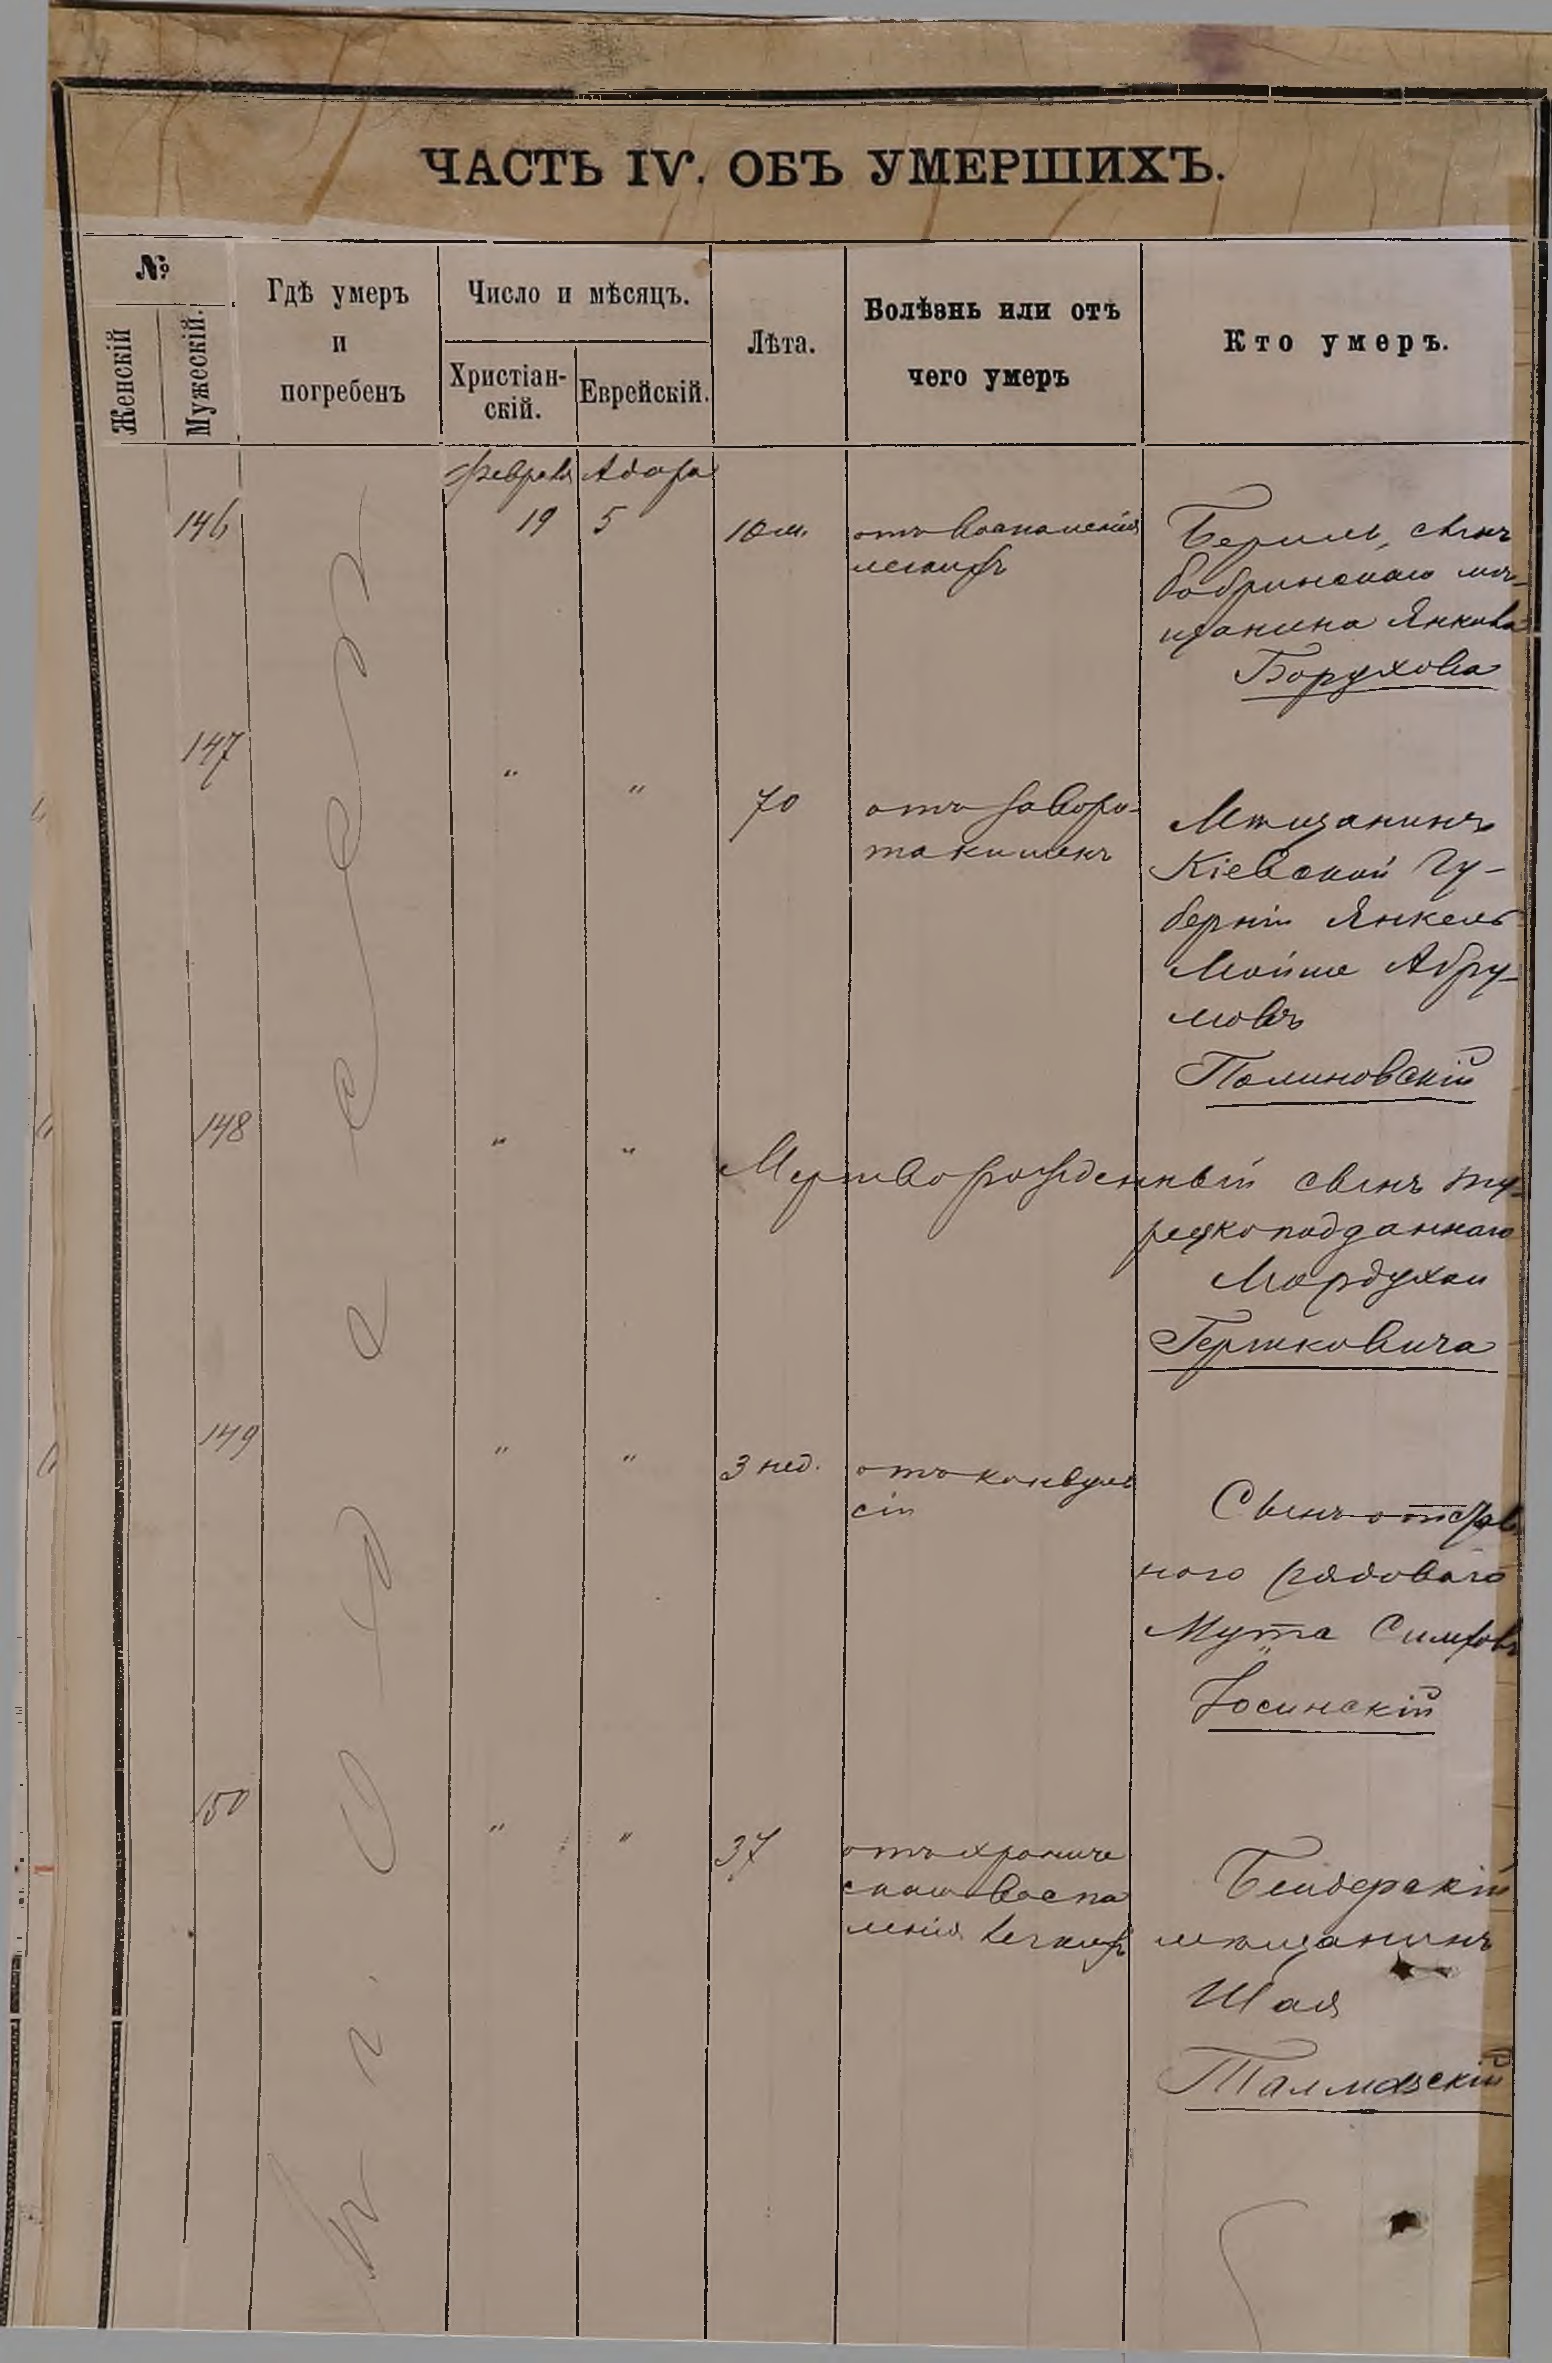 ЧАСТЬ IV. ОБЪ УМЕРШИХЪ.
№
Женскій
Мужескій.
Гдѣ умеръ
и
погребенъ
Число и мѣсяцъ.
Христіан-
скій.
Еврейскій.
Лѣта.
Болѣзнь или отъ
чего умеръ
Кто умеръ.
Февраля Адара
146 19 5 10 м. отъ воспаленія
легкихъ
Берилъ, сынъ
бобринскаго мѣ-
щанина Янкова
Борухова
147 " " 70 отъ заворо-
та кишекъ
Мѣщанинъ
Кіевской Гу-
берніи Янкель
Мойше Абру-
мовъ
Полиновскій
148 " " Мертворожденный сынъ ту-
рецкоподданнаго
Мордухаи
Гершковича
149 " " 3 нед. отъ конвуль
сіи
Сынъ отстав
ного рядоваго
Мута Симхов
Юсинскій
150 " " 37 отъ хрониче
скаго воспа
ленія легкихъ
Бендерскій
мѣщанинъ
Шая
Талмазскій
г. Одесса